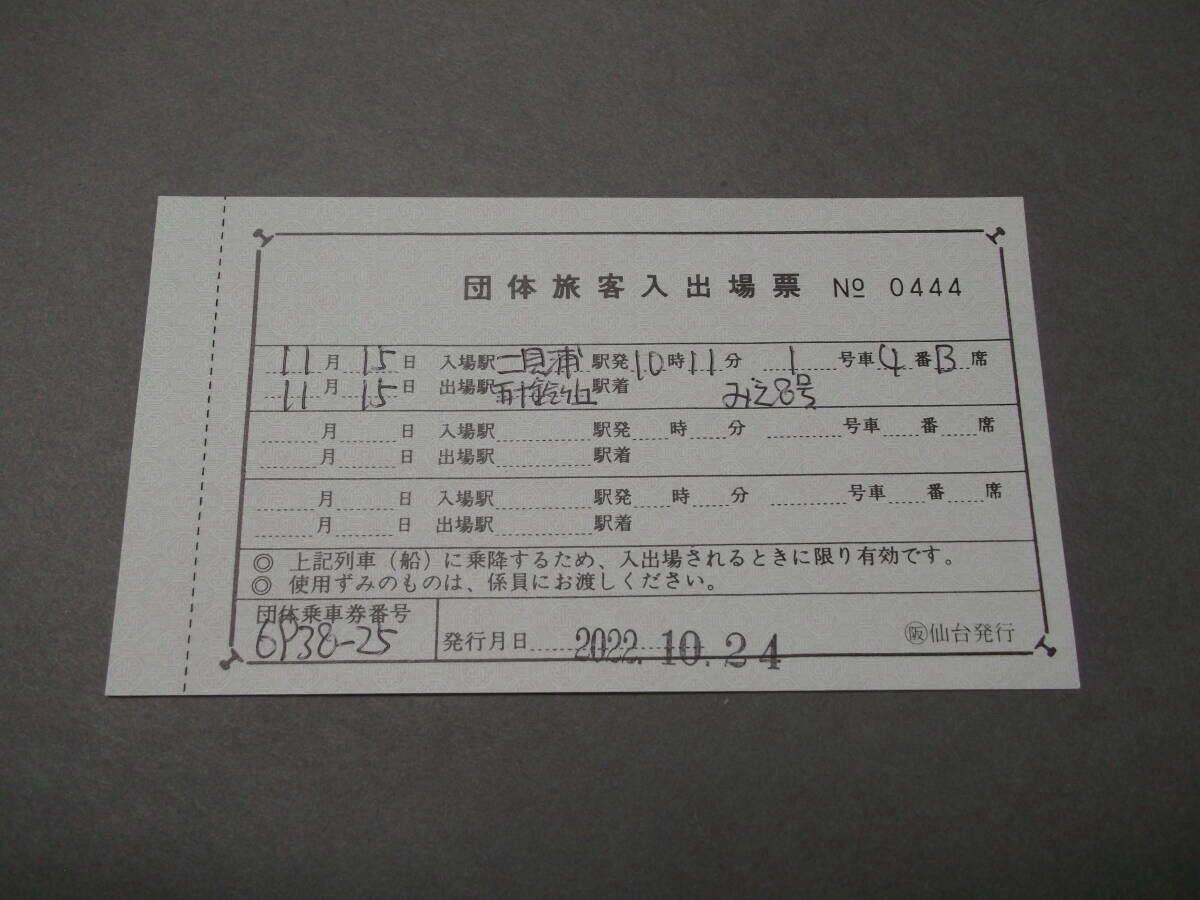 団体旅客入出場票 № 0444
11月15日 入場駅 二見浦 駅発 10時11分 1号車4番B席
11月15日 出場駅 駅着 みえ8号
月 日 入場駅 駅発 時 分 号車 番 席
月 日 出場駅 駅着
月 日 入場駅 駅発 時 分 号車 番 席
月 日 出場駅 駅着
◎ 上記列車（船）に乗降するため、入出場されるときに限り有効です。
◎ 使用ずみのものは、係員にお渡しください。
団体乗車券番号
6P38-25
発行月日 2022.10.24
㊷仙台発行